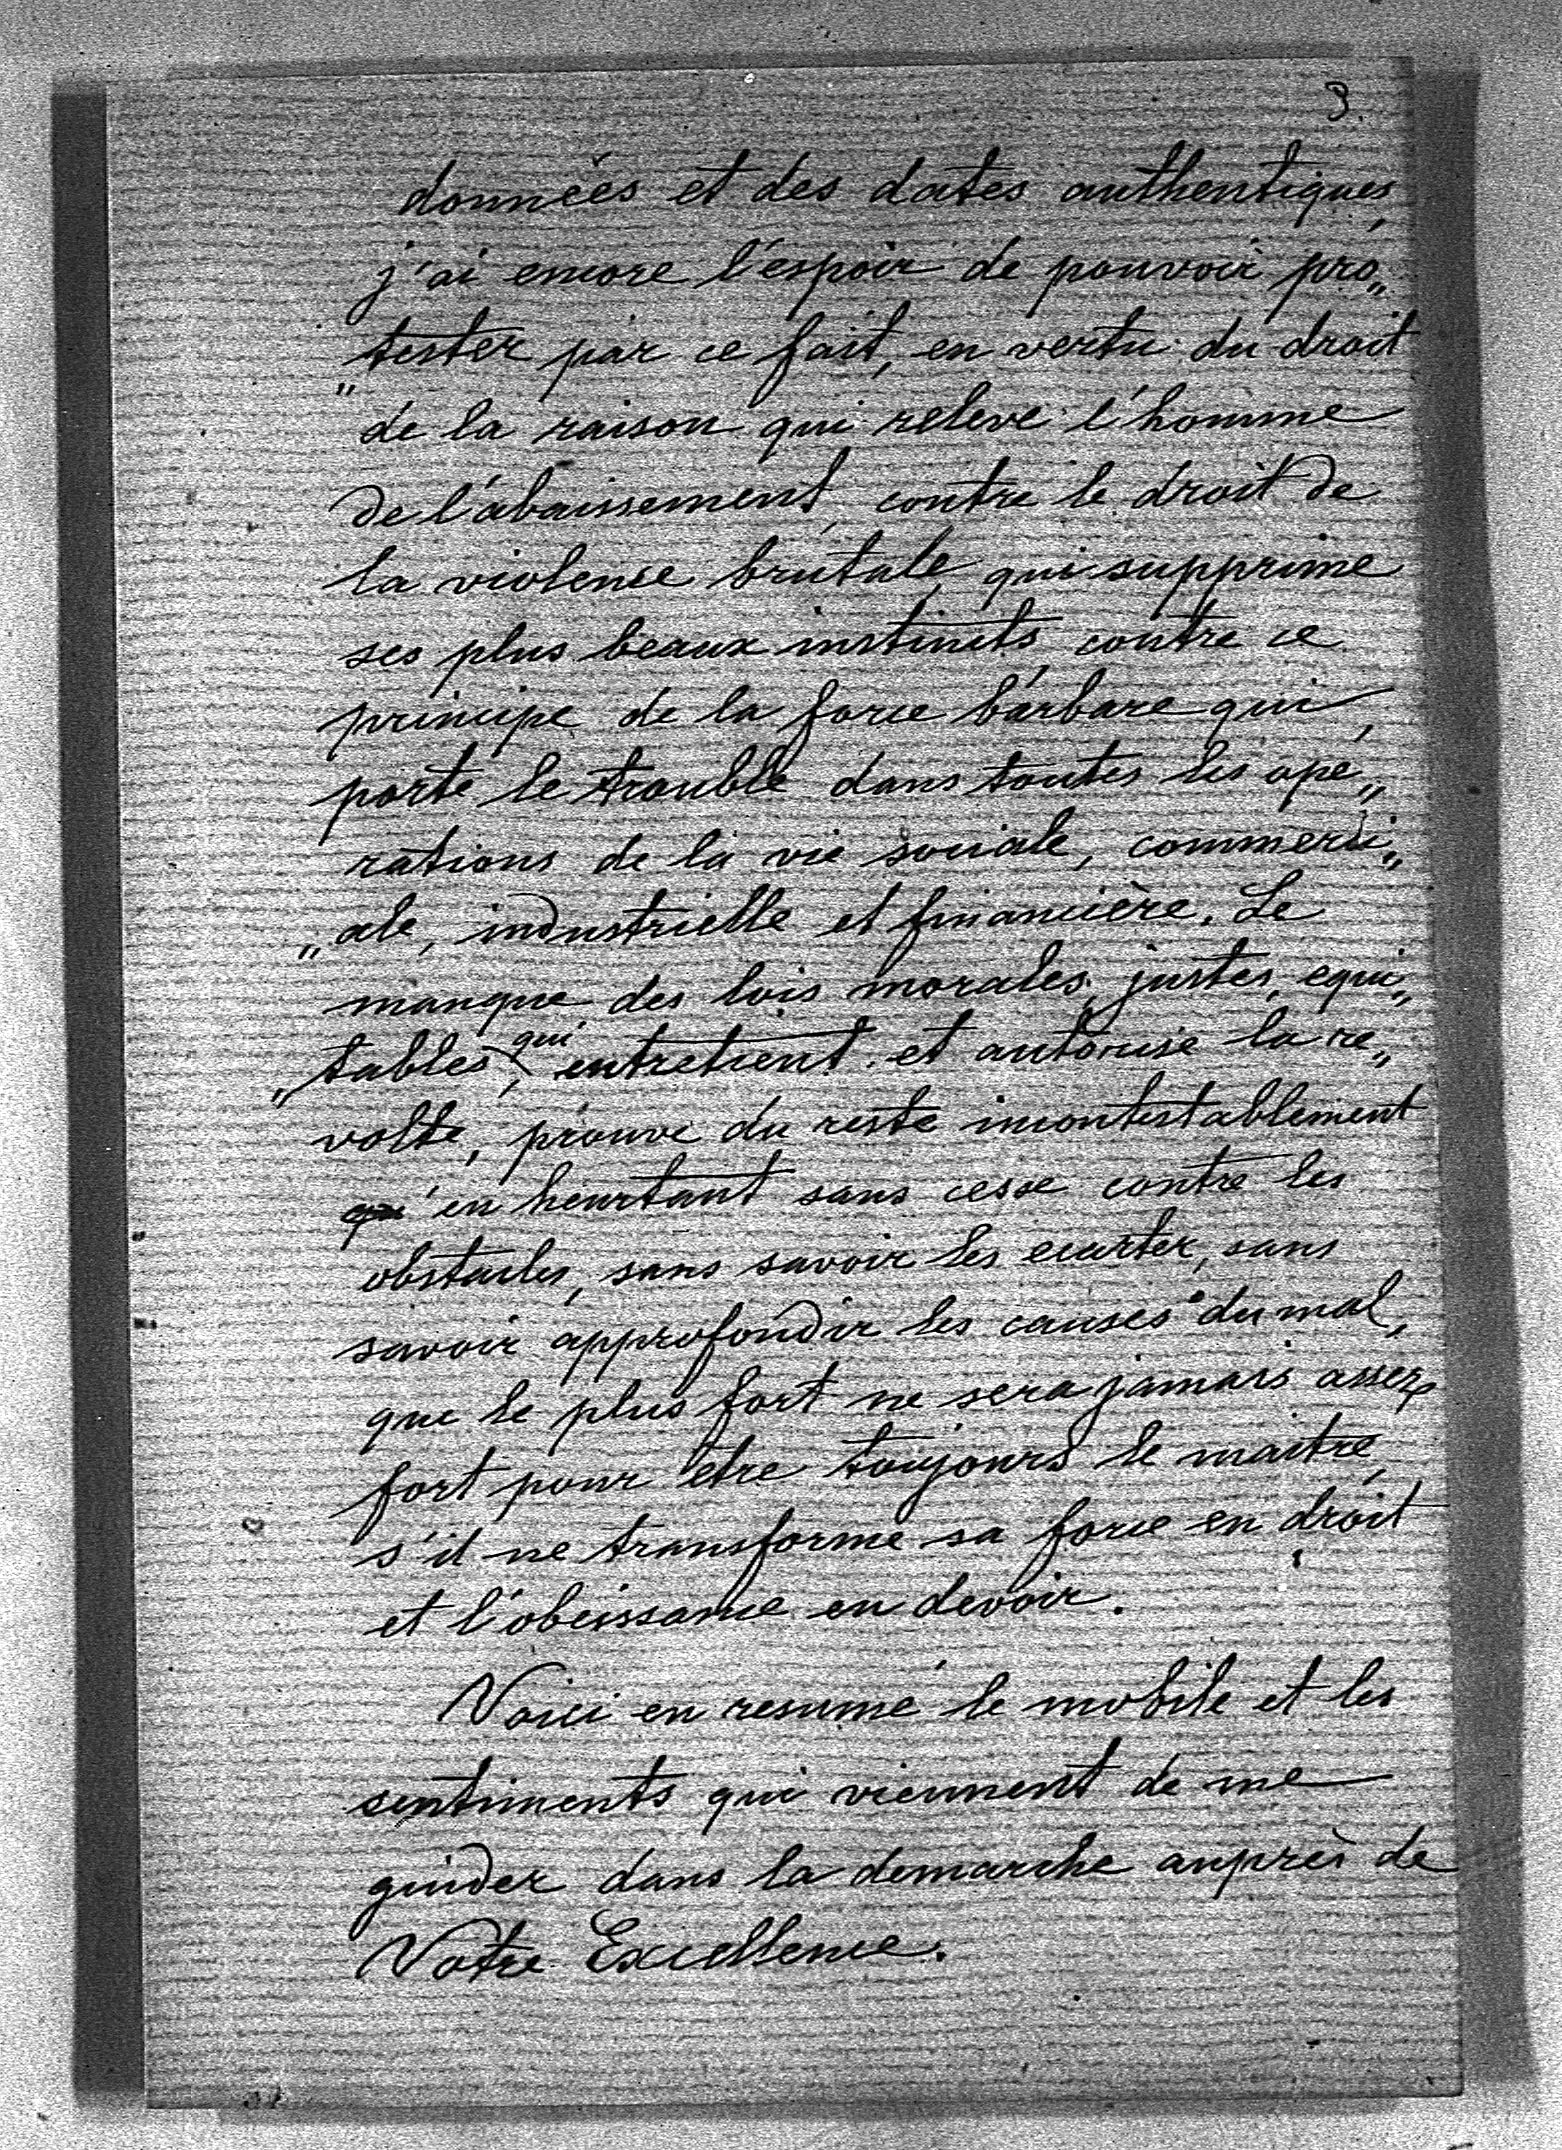 3.
données et des dates authentiques,
j'ai encore l'espoir de pouvoir pro„
„tester par ce fait, en vertu du droit
de la raison qui releve l'homme
de l'abaissement, contre le droit de
la violence brutale, qui supprime
ses plus beaux instincts, contre ce
principe de la force barbare qui,
porte le trouble dans toutes les opé„
rations de la vie sociale, commerci„
„ale, industrielle et financière. Le
manque des lois morales, justes, equi„
„tables, qui entretient et autorise la re„
volte, prouve du reste incontestablement
qu'en heurtant sans cesse contre les
obstacles, sans savoir les ecarter, sans
savoir approfondir les causes du mal,
que le plus fort ne sera jamais assez
fort pour être toujours le maitre,
s'il ne transforme sa force en droit
et l'obeissance en devoir.
Voici en resumé le mobile et les
sentiments qui viennent de me
guider dans la demarche auprès de
Votre Excellence.